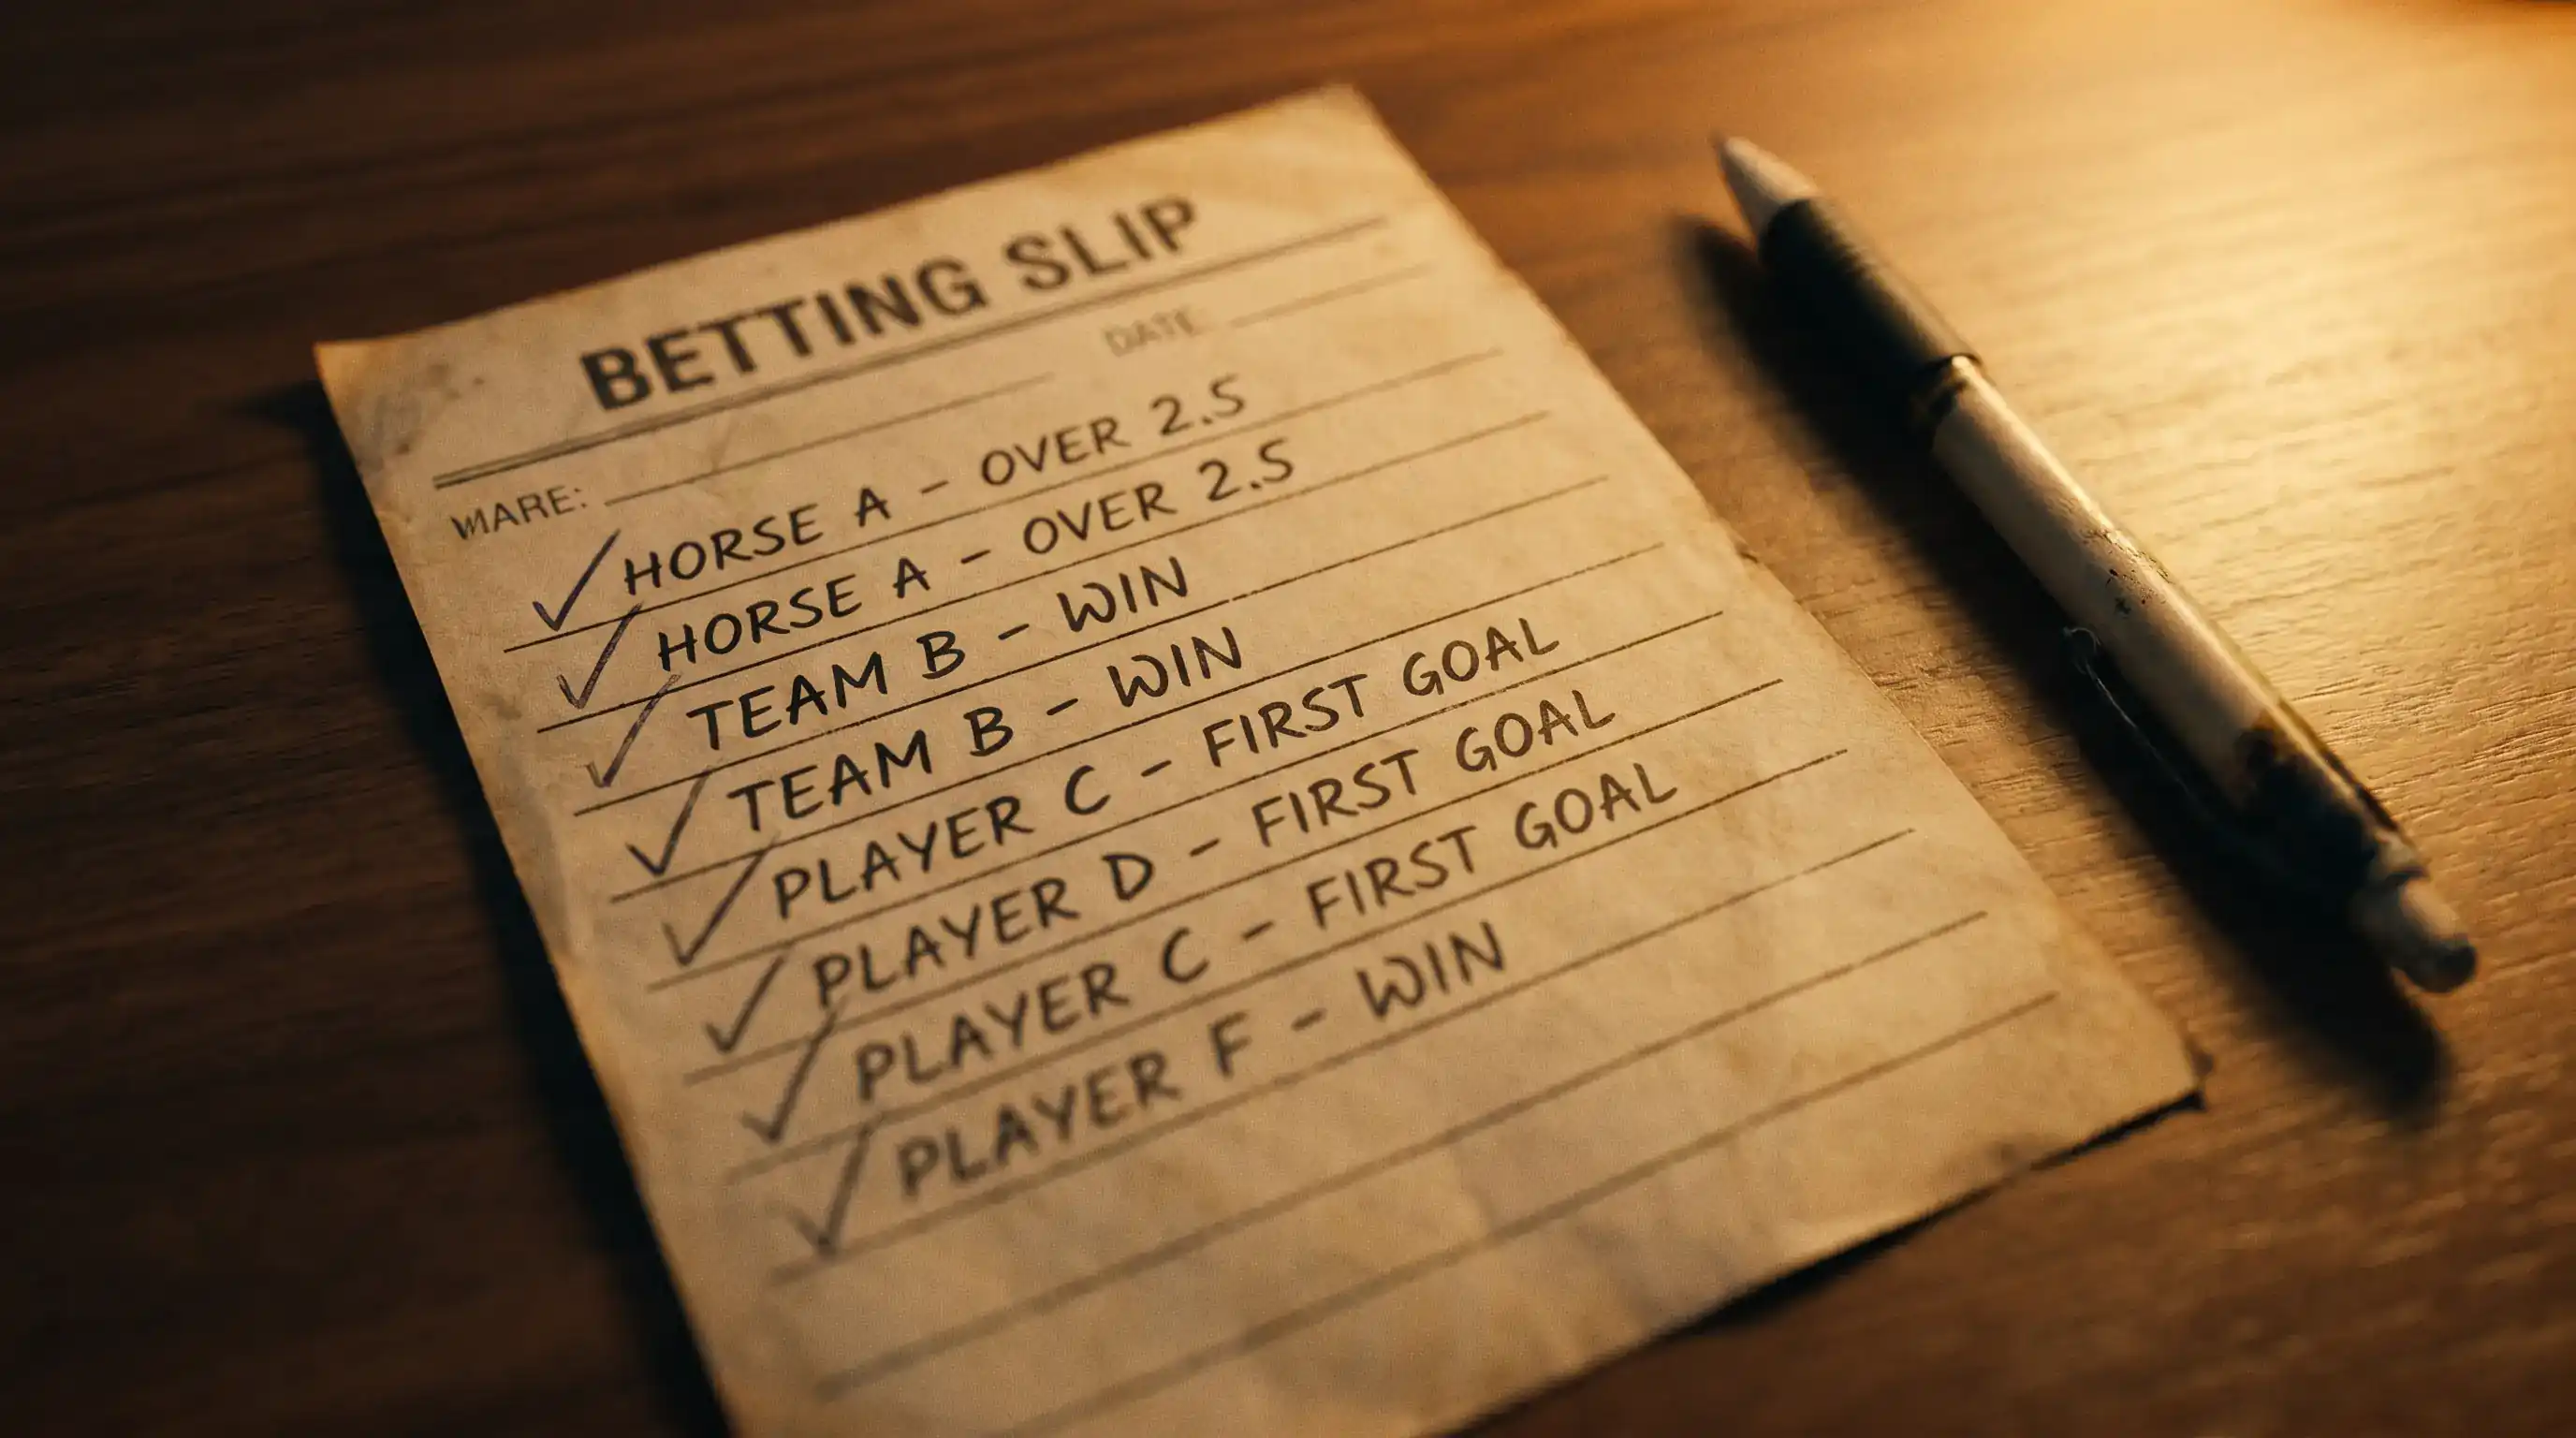 BETTING SLIP
DATE
WARE:
HORSE A - OVER 2.5
HORSE A - OVER 2.5
TEAM B - WIN
TEAM B - WIN
PLAYER C - FIRST GOAL
PLAYER D - FIRST GOAL
PLAYER C - FIRST GOAL
PLAYER F - WIN